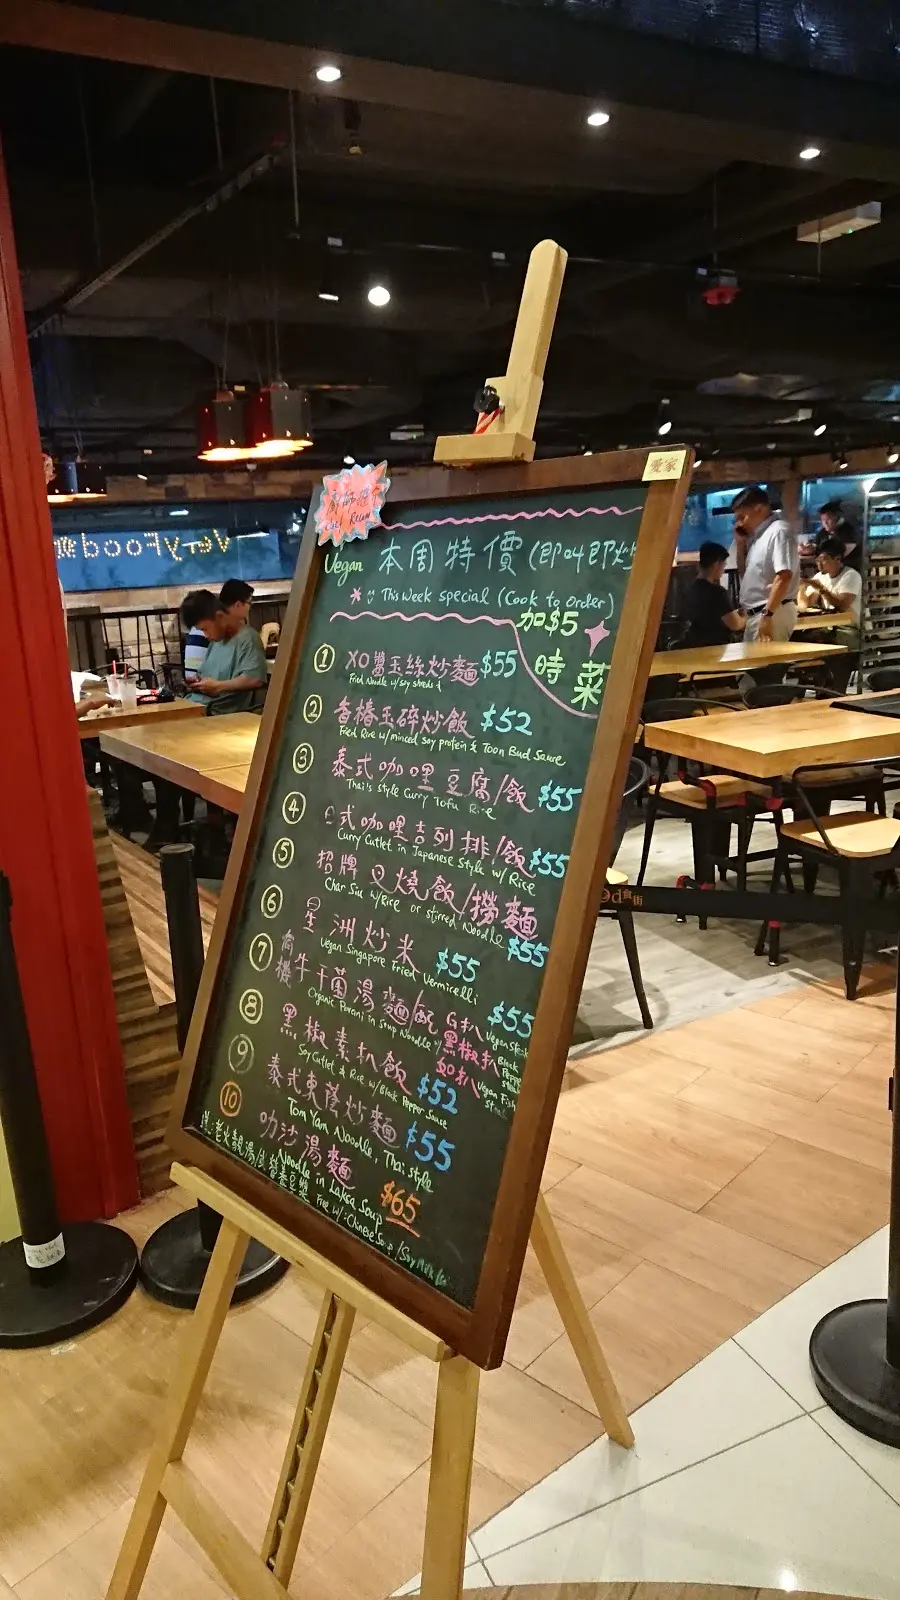 愛家
Vegan 本周特價 (即叫即炒
This week special (Cook to order)
加$5
時菜
① XO醬玉絲炒麵 $55
Fried Noodle w/soy shreded
② 香椿玉碎炒飯 $52
Fried Rice w/minced soy protein & Toon Bud Sauce
③ 泰式咖哩豆腐/飯 $55
Thai's style Curry Tofu Rice
④ 日式咖哩吉列排/飯 $55
Curry Cutlet in Japanese Style w/ Rice
⑤ 招牌叉燒飯/撈麵 $55
Char Siu w/Rice or stirred Noodle
⑥ 星洲炒米 $55
Vegan Singapore Fried Vermicelli
⑦ 有機牛干菌湯麵/配 $55
Organic Porcini in Soup Noodle w/
G扒 Vegan Steak
黑椒扒 Black Pepper Steak
如扒 Vegan Fish Steak
⑧ 黑椒素扒飯 $52
Soy Cutlet & Rice w/Black Pepper Sauce
⑨ 泰式東蔭炒麵 $55
Tom Yam Noodle, Thai style
⑩ 叻沙湯麵 $65
Noodle in Laksa Soup
送:老火靚湯/營養豆漿 Free w/:Chinese Soup/Soy Milk
VeryFood